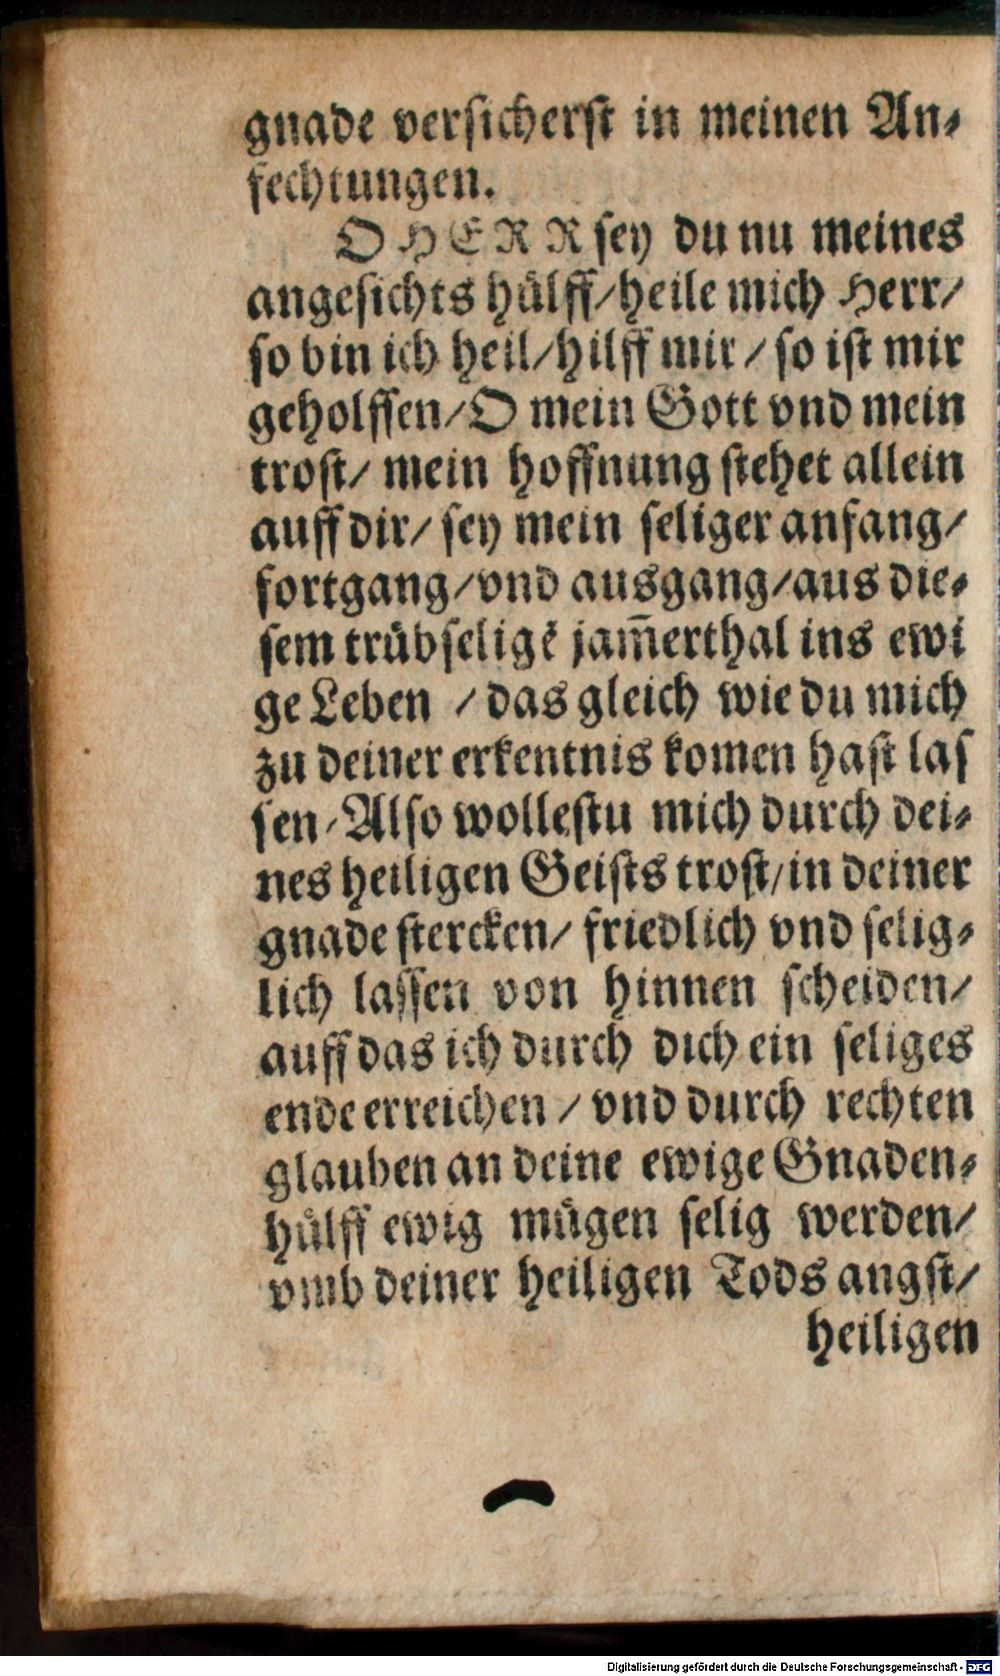 gnade versicherst in meinen An⸗
fechtungen.
O HERR sey du nu meines
angesichts hülff/heile mich Herr/
so bin ich heil/hilff mir/so ist mir
geholffen/O mein Gott vnd mein
trost/ mein hoffnung stehet allein
auff dir/ sey mein seliger anfang/
fortgang/vnd ausgang/aus die⸗
sem trübseligẽ jam̃erthal ins ewi
ge Leben / das gleich wie du mich
zu deiner erkentnis komen hast las
sen/Also wollestu mich durch dei⸗
nes heiligen Geists trost/in deiner
gnade stercken/ friedlich vnd selig⸗
lich lassen von hinnen scheiden/
auff das ich durch dich ein seliges
ende erreichen / vnd durch rechten
glauben an deine ewige Gnaden⸗
hülff ewig mügen selig werden/
vmb deiner heiligen Tods angst/
heiligen
Digitalisierung gefördert durch die Deutsche Forschungsgemeinschaft - DFG